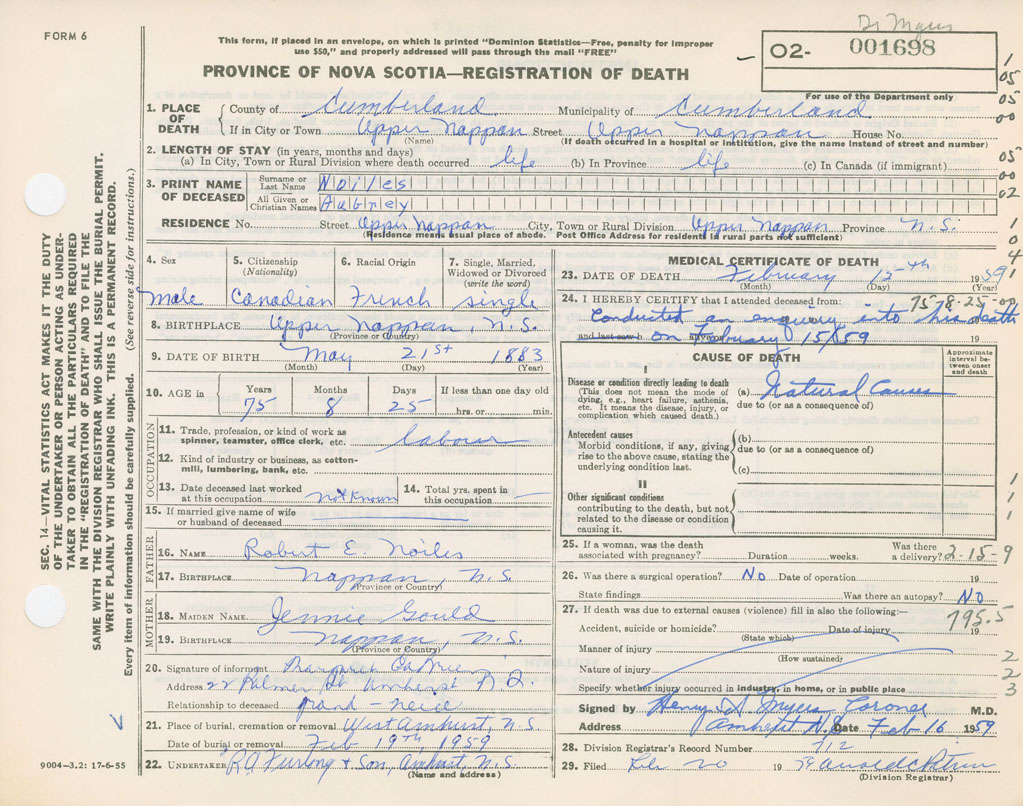 Dr Myers
FORM 6
This form, if placed in an envelope, on which is printed "Dominion Statistics—Free, penalty for improper
use $50," and properly addressed will pass through the mail "FREE"
O2- 001698
For use of the Department only
PROVINCE OF NOVA SCOTIA—REGISTRATION OF DEATH
1. PLACE OF DEATH County of Cumberland Municipality of Cumberland
If in City or Town Upper Nappan Street Upper Nappan House No.
(Name) (If death occurred in a hospital or institution, give the name instead of street and number)
2. LENGTH OF STAY (in years, months and days)
(a) In City, Town or Rural Division where death occurred life (b) In Province life (c) In Canada (if immigrant)
3. PRINT NAME OF DECEASED Surname or Last Name Noiles
All Given or Christian Names Aubrey
RESIDENCE No. Street Upper Nappan City, Town or Rural Division Upper Nappan Province N.S.
(Residence means usual place of abode. Post Office Address for residents in rural parts not sufficient)
4. Sex 5. Citizenship (Nationality) 6. Racial Origin 7. Single, Married, Widowed or Divorced (write the word)
Male Canadian French single
8. BIRTHPLACE Upper Nappan, N.S.
(Province or Country)
9. DATE OF BIRTH May 21st 1883
(Month) (Day) (Year)
10. AGE in Years Months Days If less than one day old
75 8 25 hrs. or min.
OCCUPATION
11. Trade, profession, or kind of work as spinner, teamster, office clerk, etc. labour
12. Kind of industry or business, as cotton-mill, lumbering, bank, etc.
13. Date deceased last worked at this occupation not known 14. Total yrs. spent in this occupation —
15. If married give name of wife or husband of deceased
FATHER
16. NAME Robert E. Noiles
17. BIRTHPLACE Nappan, N.S.
(Province or Country)
MOTHER
18. MAIDEN NAME Jennie Gould
19. BIRTHPLACE Nappan, N.S.
(Province or Country)
20. Signature of informant
Address 22 Palmer St Amherst N.S.
Relationship to deceased Grand-neice
21. Place of burial, cremation or removal West Amherst, N.S.
Date of burial or removal Feb 19th, 1959
22. UNDERTAKER R.A. Furlong & Son, Amherst, N.S.
(Name and address)
9004—3.2: 17-6-55
MEDICAL CERTIFICATE OF DEATH
23. DATE OF DEATH February 15th 1959
(Month) (Day) (Year)
24. I HEREBY CERTIFY that I attended deceased from: 75-8-25-
Conducted an enquiry into his death
and last saw on February 15/59 19
CAUSE OF DEATH
Approximate interval between onset and death
I
Disease or condition directly leading to death
(This does not mean the mode of dying, e.g., heart failure, asthenia, etc. It means the disease, injury, or complication which caused death.)
(a) Natural Causes
due to (or as a consequence of)
Antecedent causes
Morbid conditions, if any, giving rise to the above cause, stating the underlying condition last.
(b)
due to (or as a consequence of)
(c)
II
Other significant conditions
contributing to the death, but not related to the disease or condition causing it.
25. If a woman, was the death associated with pregnancy? Duration weeks. Was there a delivery? 2-15-9
26. Was there a surgical operation? No Date of operation 19
State findings Was there an autopsy? No
27. If death was due to external causes (violence) fill in also the following:— 795.5
Accident, suicide or homicide? Date of injury 19
(State which)
Manner of injury
(How sustained)
Nature of injury
Specify whether injury occurred in industry, in home, or in public place
Signed by Henry A Myers Coroner M.D.
Address Amherst N.S. Date Feb 16 1959
28. Division Registrar's Record Number 712
29. Filed Feb 20 1959
(Division Registrar)
SEC. 14—VITAL STATISTICS ACT MAKES IT THE DUTY
OF THE UNDERTAKER OR PERSON ACTING AS UNDER-
TAKER TO OBTAIN ALL THE PARTICULARS REQUIRED
IN THE "REGISTRATION OF DEATH" AND TO FILE THE
SAME WITH THE DIVISION REGISTRAR WHO SHALL ISSUE THE BURIAL PERMIT.
WRITE PLAINLY WITH UNFADING INK. THIS IS A PERMANENT RECORD.
Every item of information should be carefully supplied. (See reverse side for instructions.)
1
05
05
00
05
00
02
1
0
4
1
1
1
1
2
2
3